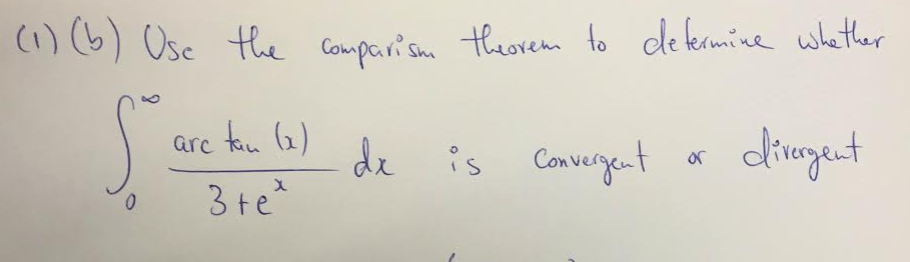 (1) (b) Use the comparism theorem to determine whether
∫₀^∞ arc tan (x) / 3 + e^x dx is Convergent or divergent